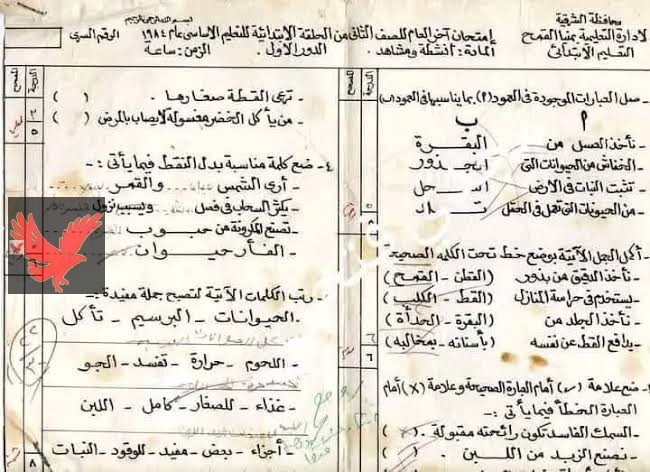 محافظة الشرقية
الادارة التعليمية بمنيا القمح
التعليم الابتدائى
بسم الله الرحمن الرحيم
إمتحان آخر العام للصف الثانى من الحلقة الابتدائية للتعليم الأساسى عام ١٩٨٤
المادة: أنشطة ومشاهد. الدور الأول. الزمن: ساعة
الرقم السرى
الدرجة
المصحح
- صل العبارات الموجودة فى العمود (٢) بما يناسبها فى العمود (ب)
٢ ب
نأخذ العسل من البقرة
الخفاش من الحيوانات التى الجذور
تثبت النبات فى الأرض النحل
من الحيونات التى تعمل فى الحقل تلد
- أكمل الجمل الآتية بوضع خط تحت الكلمة الصحيحة
- نأخذ الدقيق من بذور (القطن - القمح)
- يستخدم فى حراسة المنازل (القط - الكلب)
- نأخذ الجلد من (البقرة - الحدأة)
- يدافع القط عن نفسه (بأسنانه - بمخالبه)
- ضع علامة (✓) أمام العبارة الصحيحة وعلامة (X) أمام
العبارة الخطأ فيما يأتى :-
- السمك الفاسد تكون رائحته مقبولة. ( )
- نصنع الزبد من اللبن. ( )
الدرجة
المصحح
- ترعى القطة صغارها. ( )
- من يأكل الخضر مغسولة لا يصاب بالمرض ( )
٤- ضع كلمة مناسبة بدل النقط فيما يأتى :-
- أرى الشمس والقمر
- يكثر السحاب فى فصل ويسبب نزول
- تصنع المكرونة من حبوب
- الفأر حيوان
- رتب الكلمات الآتية لتصبح جملة مفيدة :-
الحيوانات - البرسيم - تأكل
- اللحوم - حرارة - تفسد - الجو
- غذاء - للصغار - كامل - اللبن
- أجزاء - بعض - مفيد - للوقود - النبات